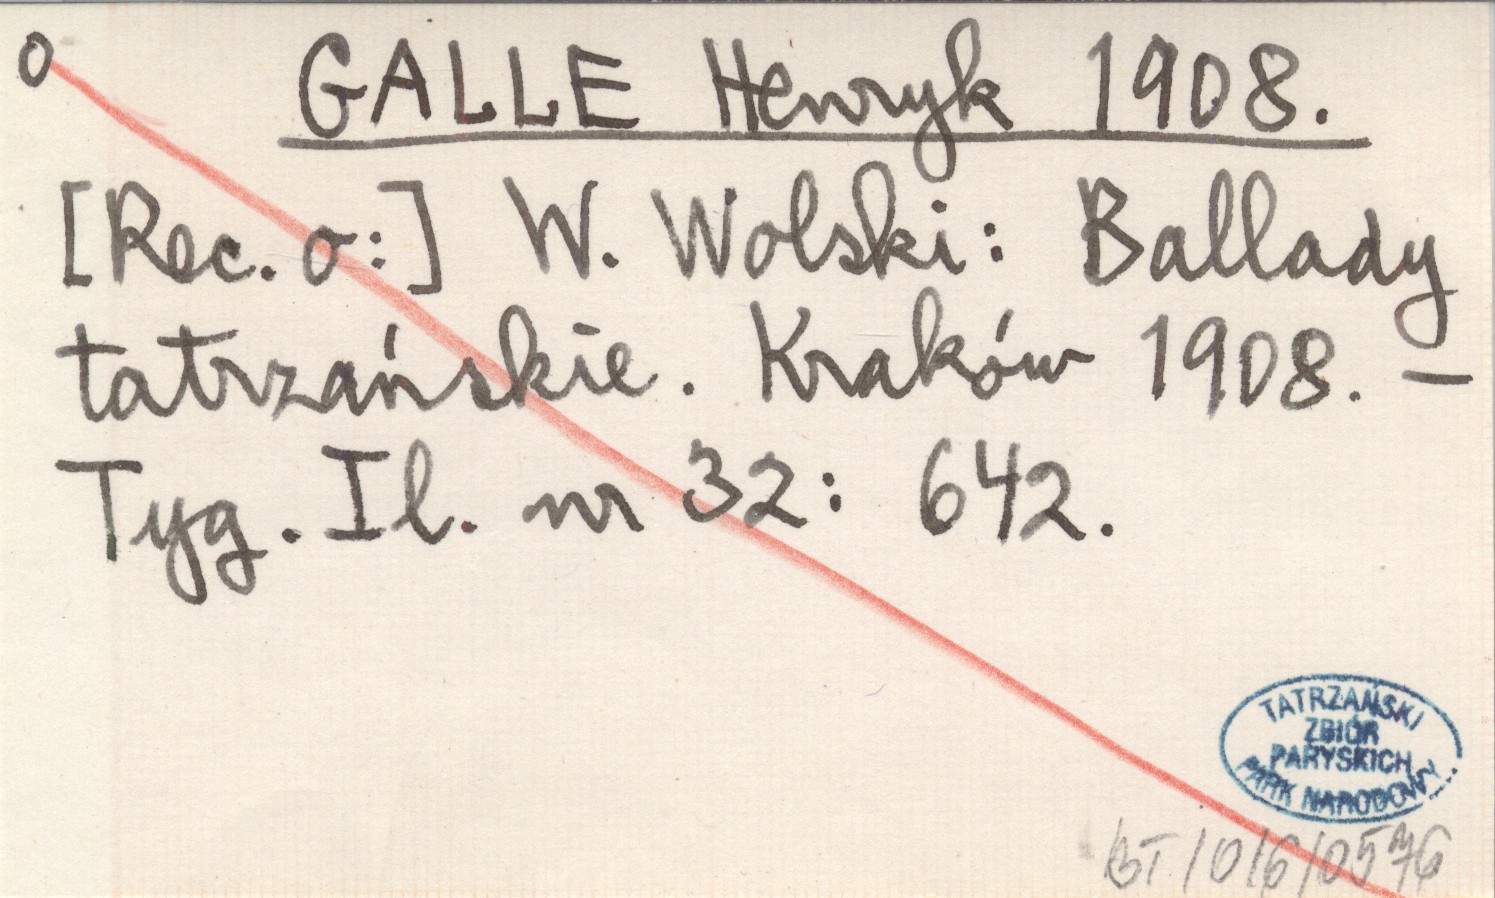 o
GALLE Henryk 1908.
[Rec. o:] W. Wolski: Ballady
tatrzańskie. Kraków 1908. –
Tyg. Il. nr 32: 642.
TATRZAŃSKI
ZBIÓR
PARYSKICH
PARK NARODOWY
BT/0/6/0576